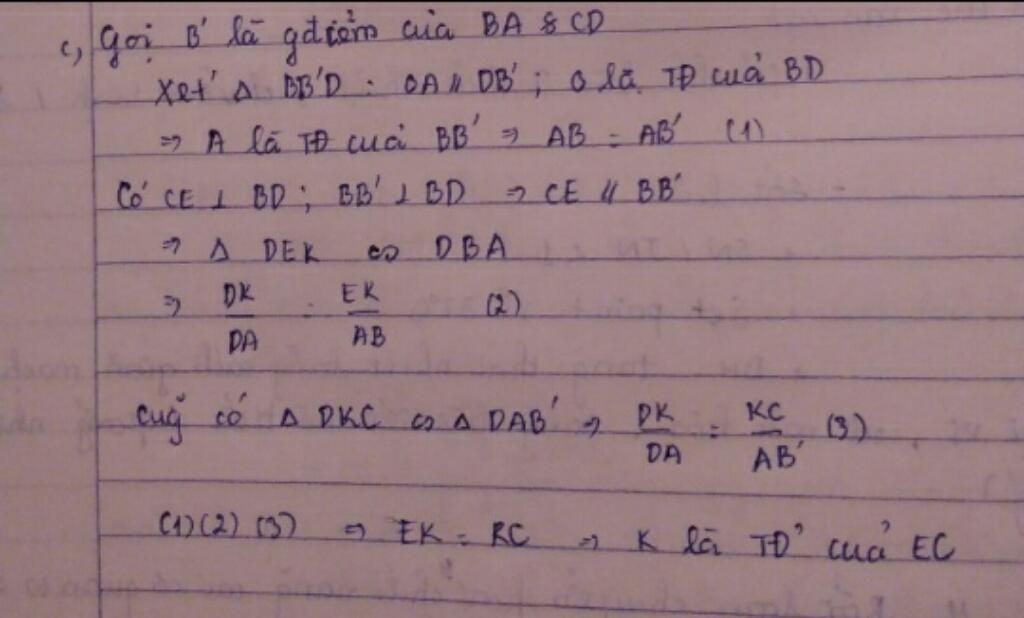 c, Gọi B' là gđiểm của BA & CD
Xét Δ BB'D : OA // DB' ; O là TĐ của BD
⇒ A là TĐ của BB' ⇒ AB = AB' (1)
Có CE ⊥ BD ; BB' ⊥ BD ⇒ CE // BB'
⇒ Δ DEK ∽ DBA
⇒ DK/DA = EK/AB (2)
Cug̃ có Δ DKC ∽ Δ DAB' ⇒ DK/DA = KC/AB' (3)
(1)(2) (3) ⇒ EK = KC ⇒ K là TĐ của EC